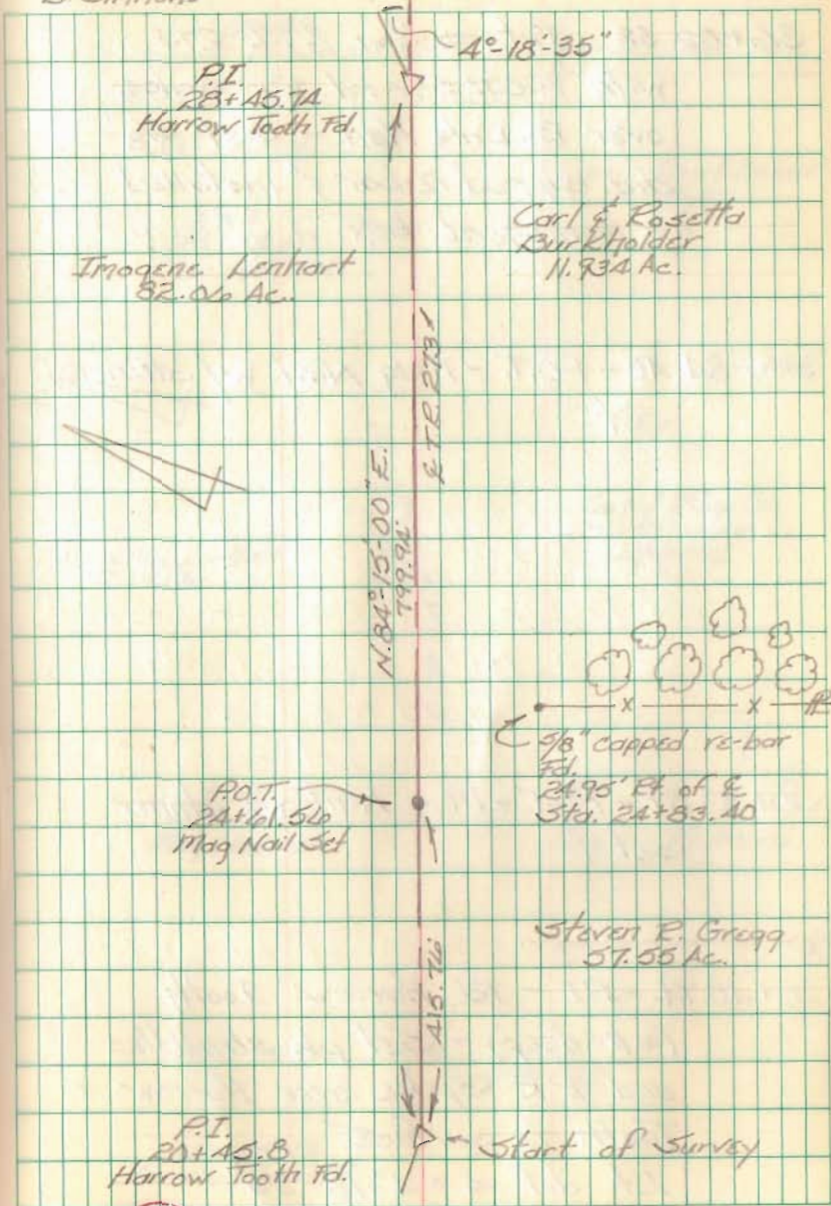 4°-18'-35"
P.I.
28+45.74
Harrow Tooth Fd.
Carl & Rosetta
Burkholder
11.934 Ac.
Imogene Lenhart
82.06 Ac.
℄ T.R. 273
N.84°-15'-00" E.
799.94'
x x
5/8" capped re-bar
Fd.
24.95' Rt. of ℄
Sta. 24+83.40
P.O.T.
24+61.56
Mag Nail Set
Steven R. Gregg
57.55 Ac.
415.76'
P.I.
20+45.8
Harrow Tooth Fd.
Start of Survey